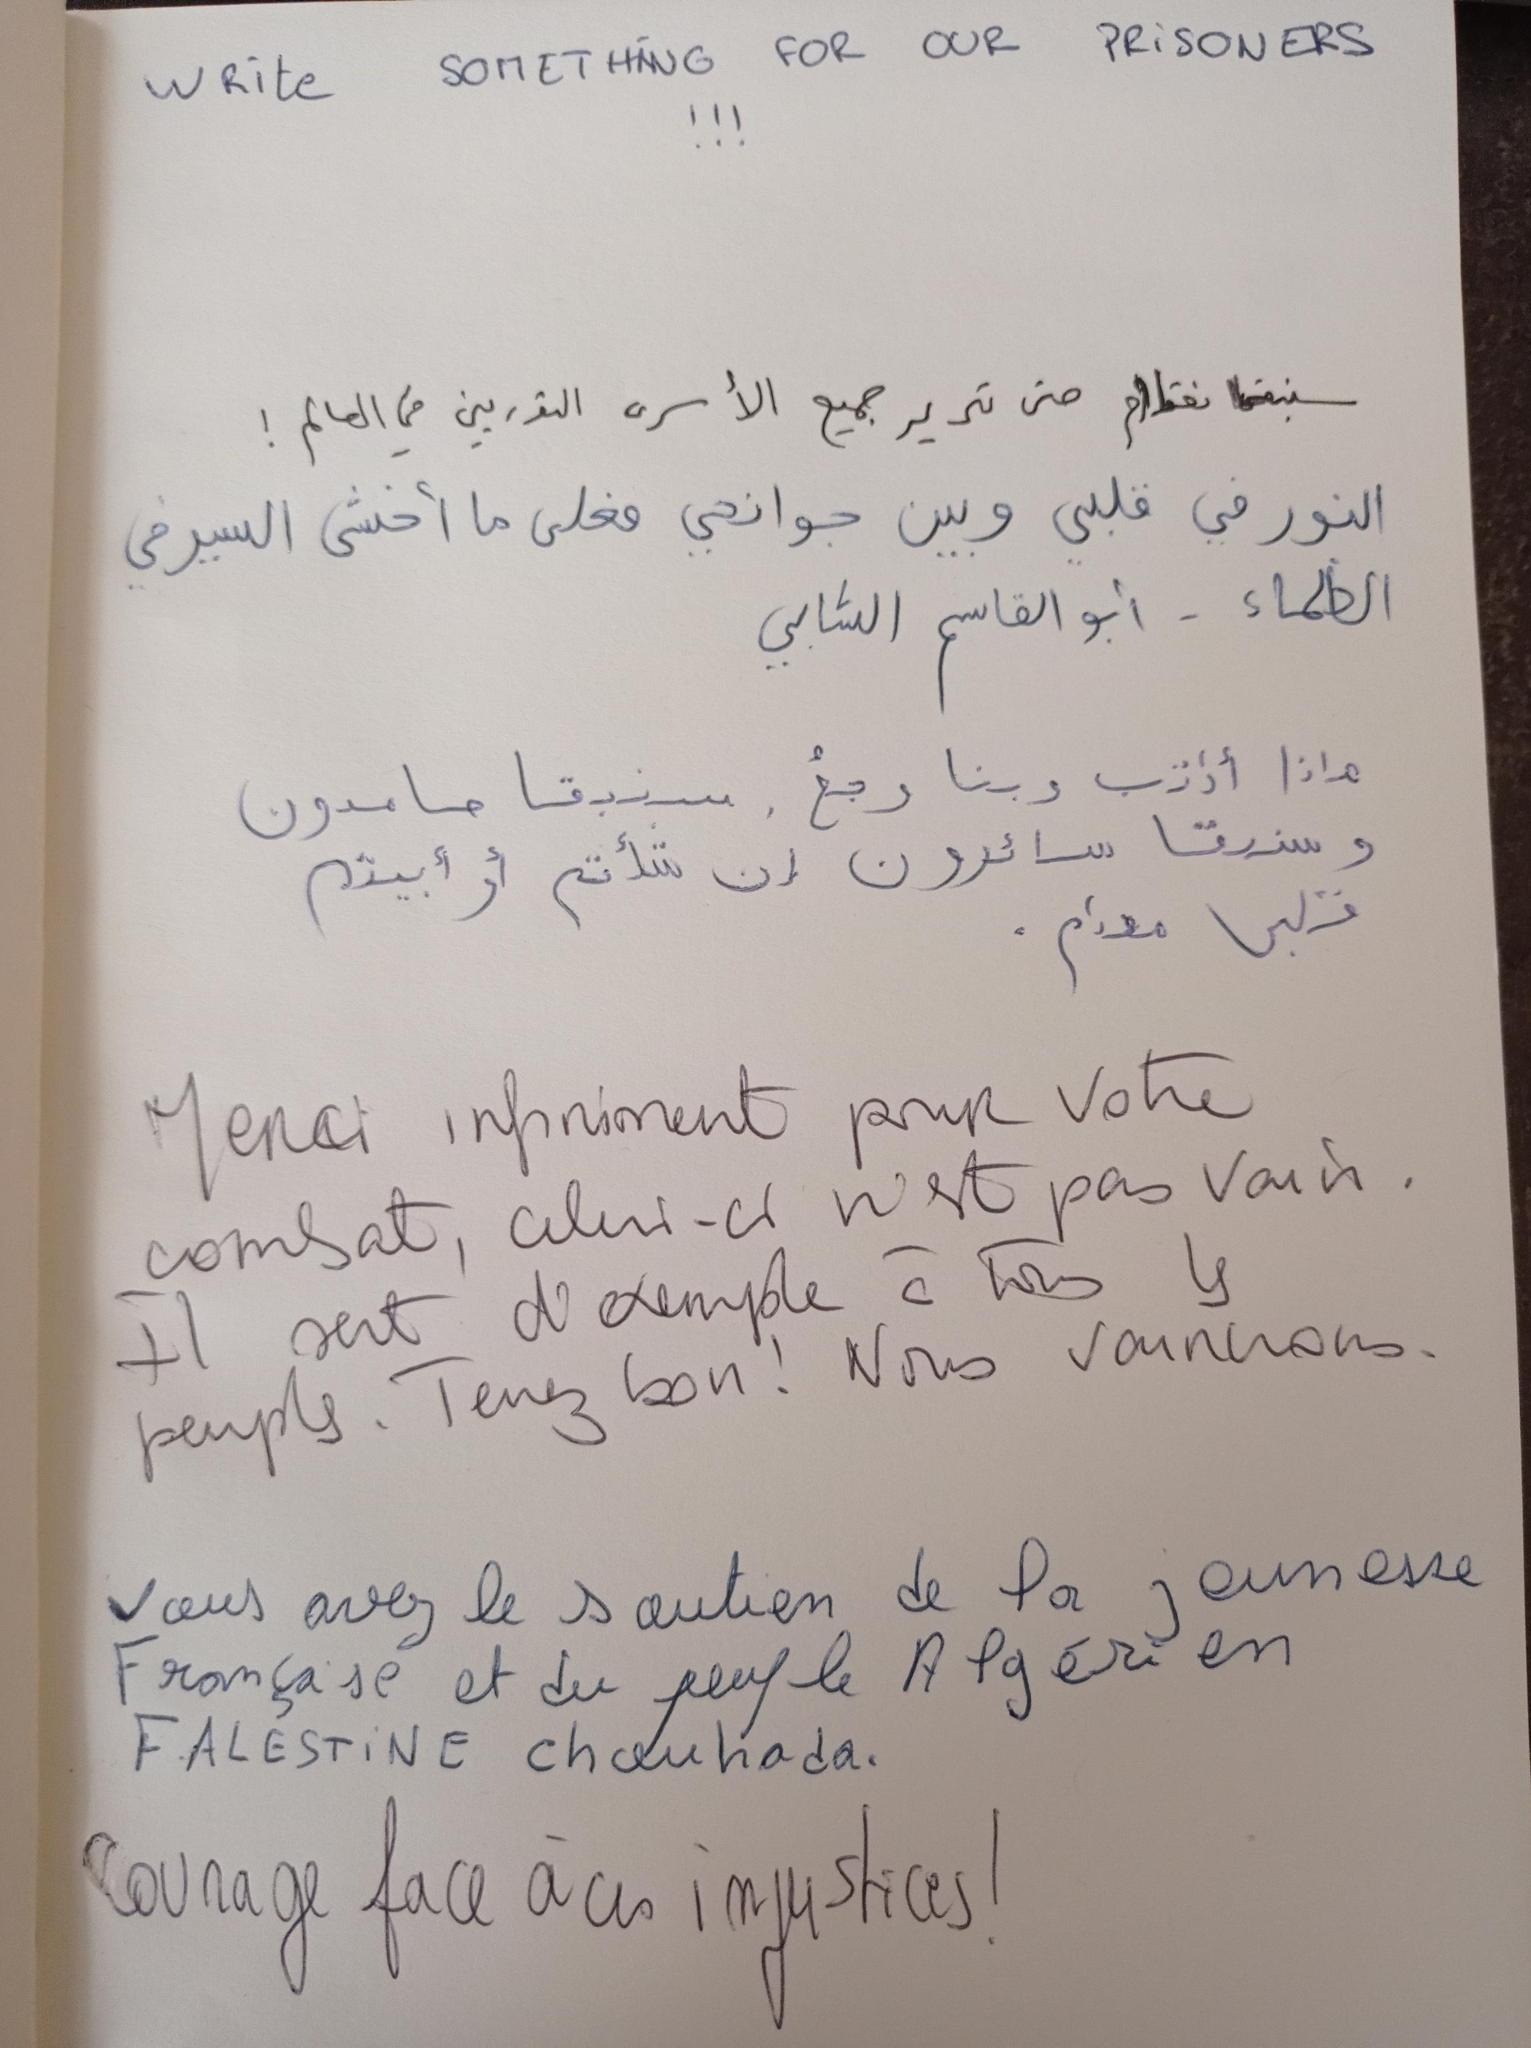 WRite SOMETHING FOR OUR PRISONERS
!!!
حتى تحرير جميع الأسرى الثوريين في العالم !
النور في قلبي وبين جوانحي فعلى ما أخشى السير في
الظلماء - أبو القاسم الشابي
ماذا أكتب وبنا وجعٌ . سنبقا صامدون
وسنبقا سائرون إن شأتم أو أبيتم
Merci infiniment pour votre
combat, celui-ci n'est pas vain.
Il sert d'exemple à tous les
peuples. Tenez bon! Nous vaincrons.
Vous avez le soutien de la jeunesse
Française et du peuple Algérien
FALESTINE chouhada.
Courage face à ces injustices!